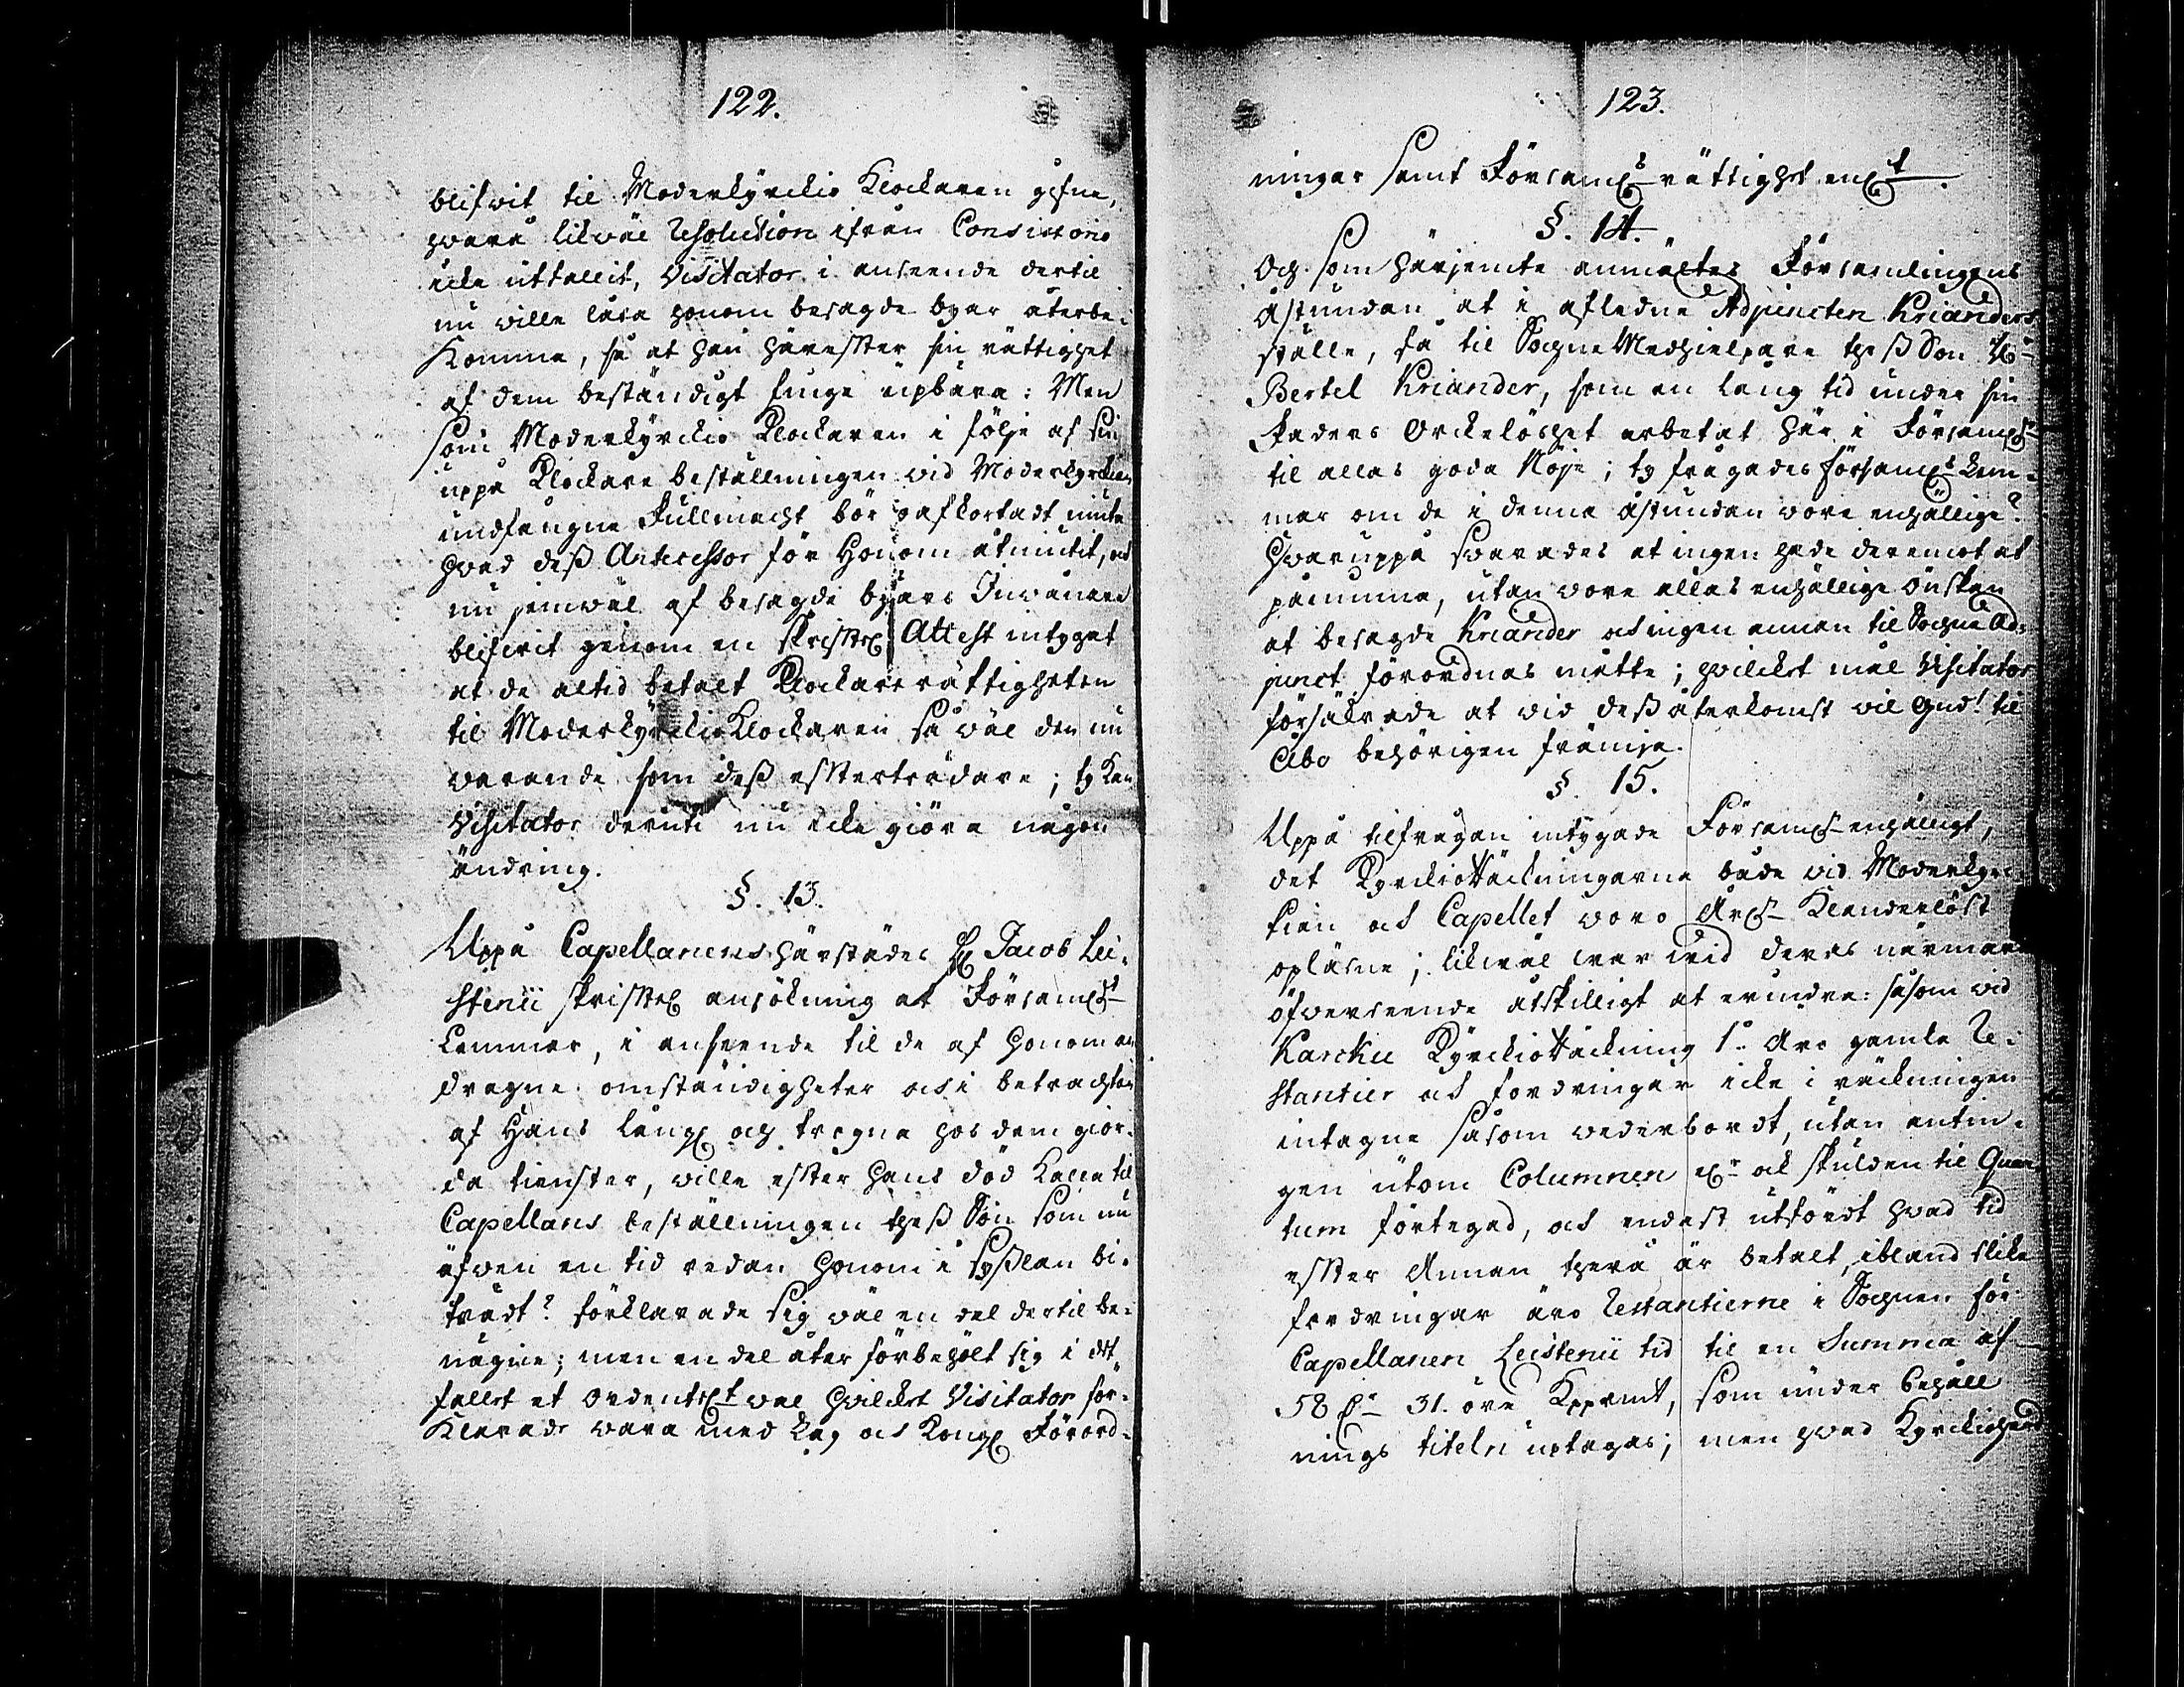 122.
blifwit til Moderkÿrckio Klockaren gifne,
hwara likwäl Resolution ifrån Consistorio
icke utfallit, Visitator i anseende dertil
nu wille låta honom besagde byar återbe-
komma, så at han härefter sin rättighet
af dem beständigt finge upbära: Men
som Moderkÿrckio Klockaren i följe af sin
uppå Klockare beställningen vid Moderkyrckian
undfångne Fullmacht bör oafkortadt niuta
hvad dess Antecessor för Honom åtniutit, och
nu jemwäl af besagde byars Inwånare
blifwit genom en skriftel Attest intygat
at de altid betalt Klockare rättigheten
til Moderkÿrckio Klockaren så wäl den nu
warande som dess efterträdare; ty kan
Visitator deruti nu icke giöra någon
ändring.
§. 13.
Uppå Capellanens härstädes H Jacob Lei-
stenii skriftel ansökning at Församls
Lemmar, i anseende til de af honom an
dragne omständigheter och i betrachtan
af Hans långl och trogna hos dem gior-
da tienster, wille efter hans död kalla til
Capellans beställningen thess Son som nu
äfwen en tid redan honom i sysslan bi-
trädt? förklarade sig wäl en del dertil be-
nägne; men en del åter förbehölt sig i det
fallet et ordentelt wal hwilcket Visitator för-
klarade wara med Lag och Kongl Förord-
123.
ningar samt Församls rättighet enlt.
§. 14.
Och som härjemte anmältes Församlingens
åstundan at i afledne Adjuncten Krianders
ställe, få til Sochne Medhielpare thess Son
Bertel Kriander, som en lång tid under sin
Faders Orckeslöshet arbetat här i Församl
til allas goda Nöje; ty frågades Församls Lem-
mar om de i denna åstundan wore enhällige?
Hwaruppå swarades at ingen hade deremot at
påminna, utan wore allas enhällige önskan
at besagde Kriander och ingen annan til Sochne Ad-
junct förordnas måtte; hwilcket mål Visitator
försäkrade at wid dess återkomst wil Gud! til
Åbo behörigen främja.
§. 15.
Uppå tilfrågan intygade Församl enhälligt,
det Kyrckio Räckningarne både wid Moderkyr
kian och Capellet woro Årl Klanderlöst
opläsne; likwäl war wid deras närmare
öfwerseende åtskilligt at erindra: såsom wid
Karcku Kyrckio Räckning 1:o äro gamla Re-
stantier och fordringar icke i räckningen
intagne såsom wederbordt, utan antin-
gen utom Columnen el at skulden til Quan
tum förtegad, och endast utfördt hvad tid
efter Annan thera är betalt, ibland slike
fordringar äro Restantierne i Sochnen för
Capellanen Leistenii tid til en Summa af
58 Dr 31. öre Kopparmt, som under behåll
nings titeln uptagas; men hvad Kyrckioherd